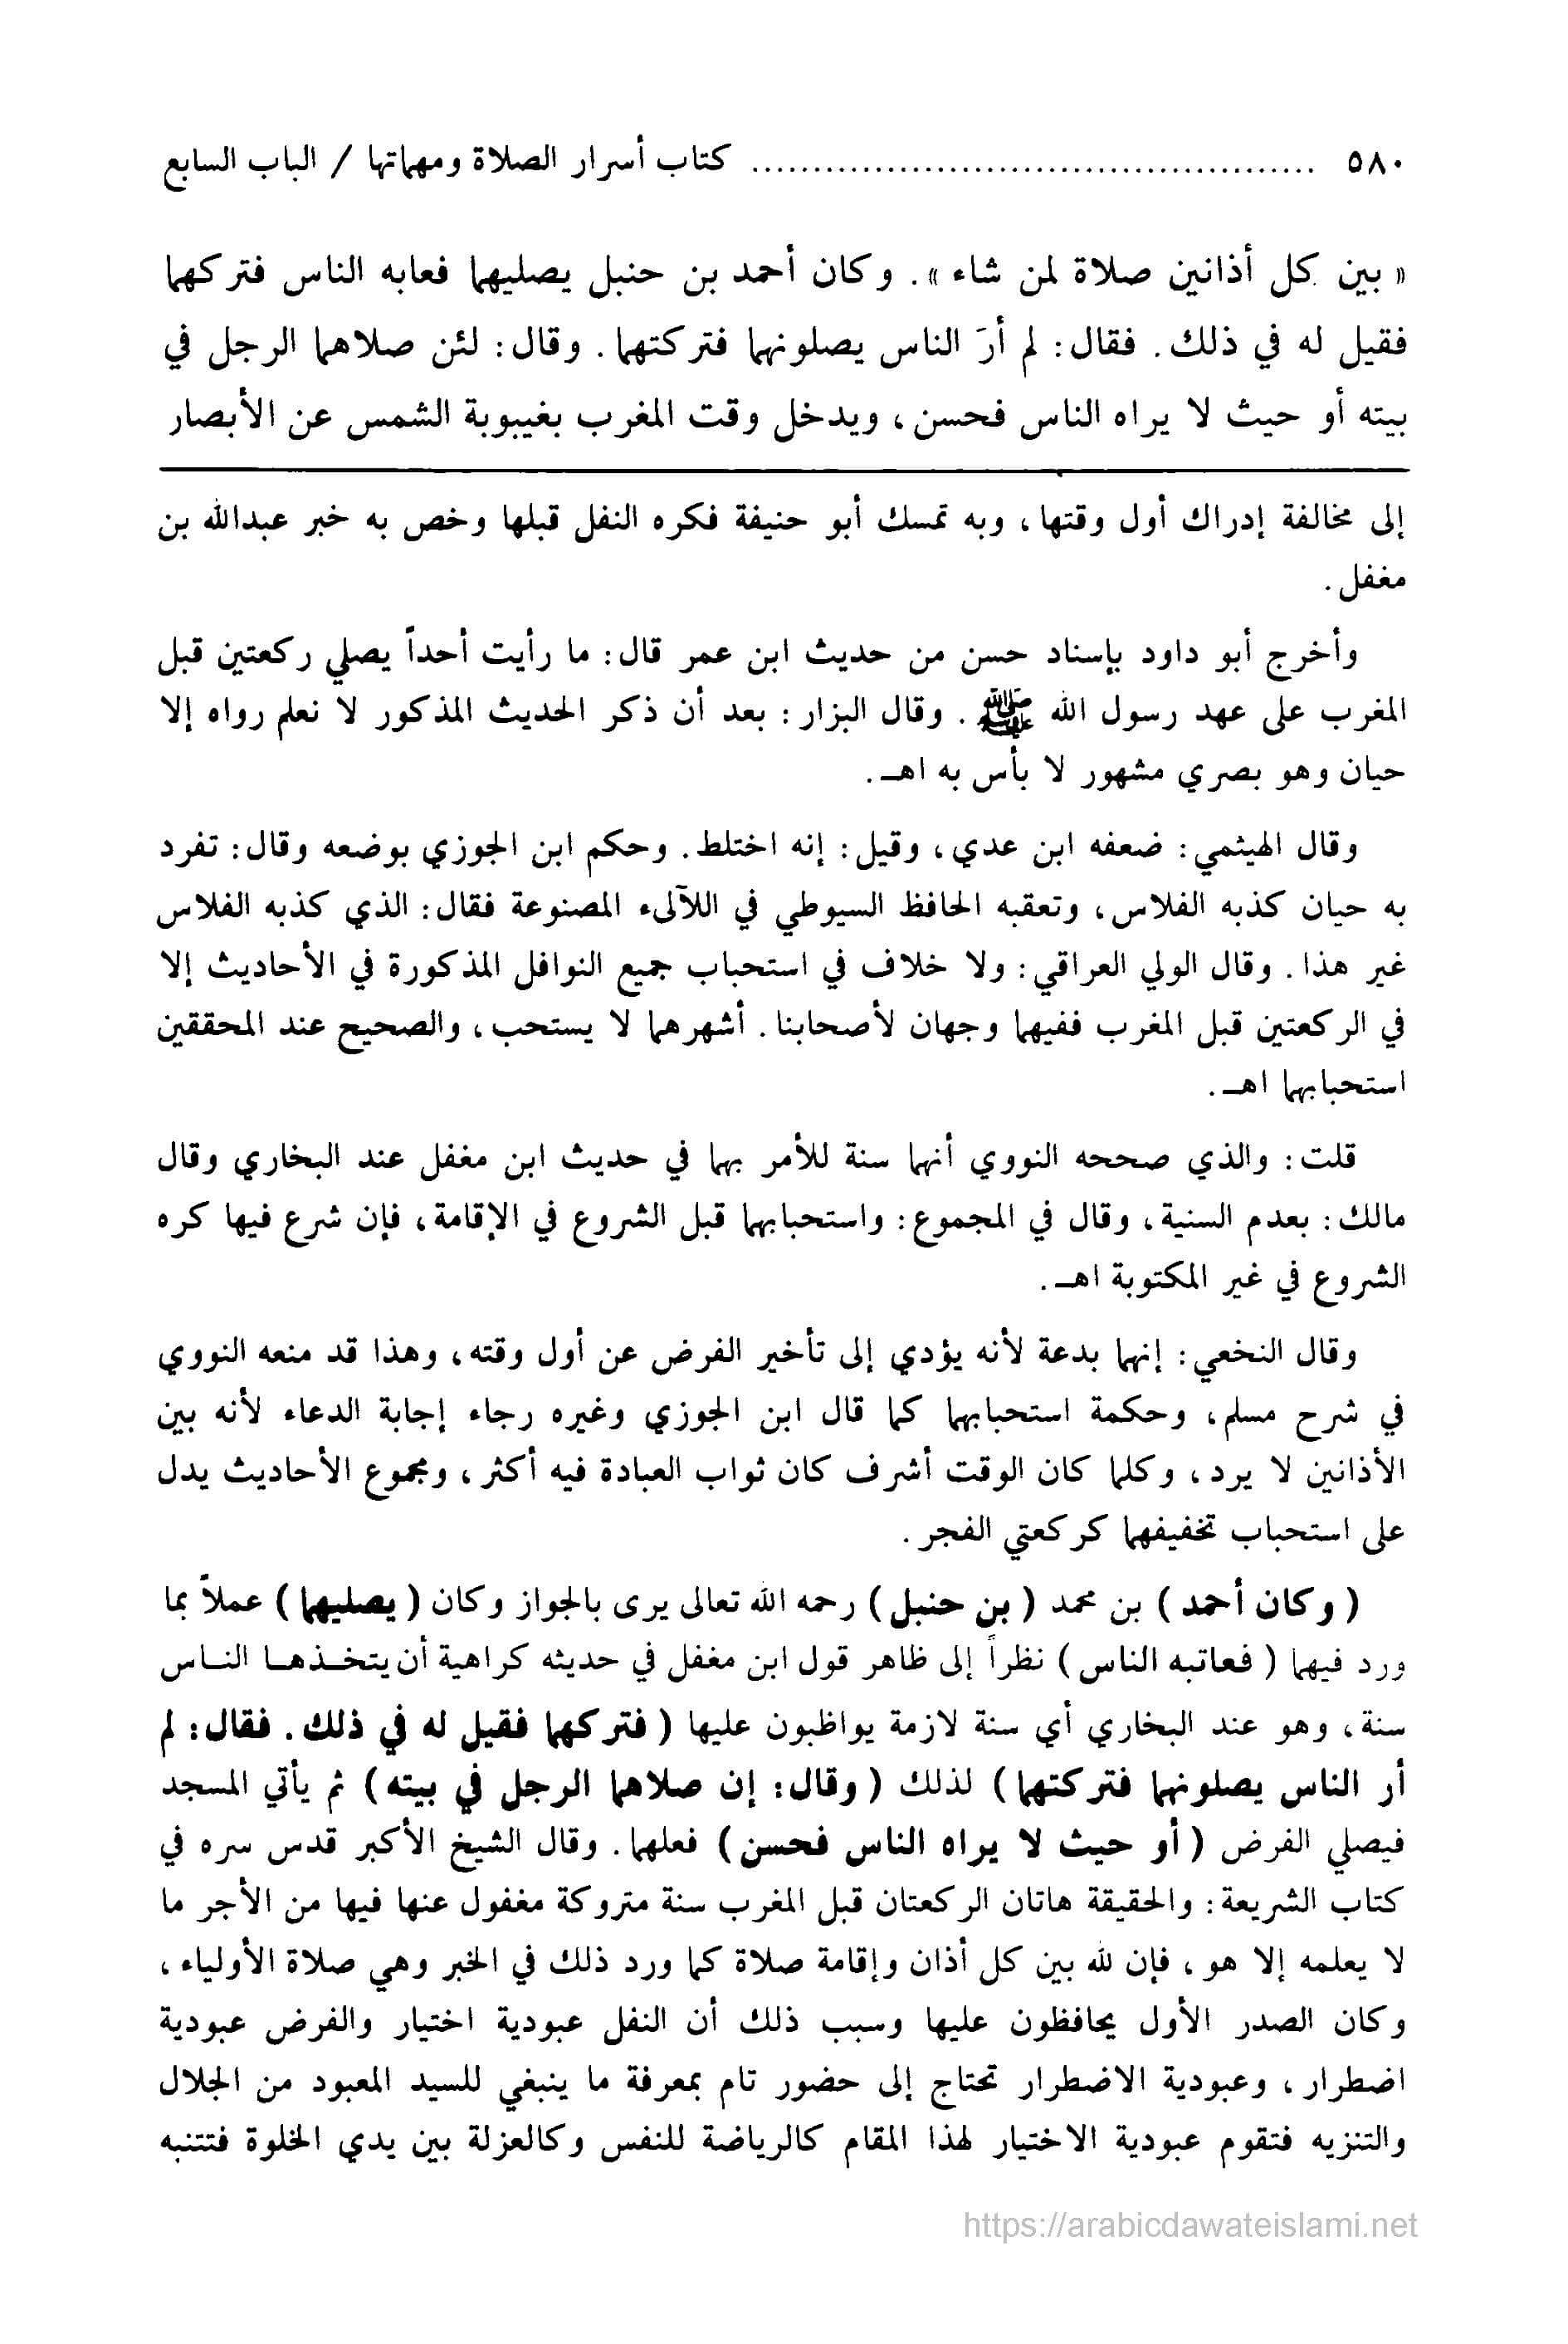 ٥٨٠ ............................................. كتاب أسرار الصلاة ومهماتها / الباب السابع
« بين كل أذانين صلاة لمن شاء ». وكان أحمد بن حنبل يصليهما فعابه الناس فتركهما
فقيل له في ذلك. فقال: لم أرَ الناس يصلونهما فتركتهما. وقال: لئن صلاهما الرجل في
بيته أو حيث لا يراه الناس فحسن، ويدخل وقت المغرب بغيبوبة الشمس عن الأبصار
إلى مخالفة إدراك أول وقتها، وبه تمسك أبو حنيفة فكره النفل قبلها وخص به خبر عبدالله بن
مغفل.
وأخرج أبو داود بإسناد حسن من حديث ابن عمر قال: ما رأيت أحداً يصلي ركعتين قبل
المغرب على عهد رسول الله ﷺ . وقال البزار : بعد أن ذكر الحديث المذكور لا نعلم رواه إلا
حيان وهو بصري مشهور لا بأس به اهـ.
وقال الهيثمي: ضعفه ابن عدي، وقيل: إنه اختلط. وحكم ابن الجوزي بوضعه وقال: تفرد
به حيان كذبه الفلاس، وتعقبه الحافظ السيوطي في اللآلىء المصنوعة فقال: الذي كذبه الفلاس
غير هذا. وقال الولي العراقي: ولا خلاف في استحباب جميع النوافل المذكورة في الأحاديث إلا
في الركعتين قبل المغرب ففيهما وجهان لأصحابنا. أشهرهما لا يستحب، والصحيح عند المحققين
استحبابهما اهـ.
قلت: والذي صححه النووي أنهما سنة للأمر بهما في حديث ابن مغفل عند البخاري وقال
مالك: بعدم السنية، وقال في المجموع: واستحبابهما قبل الشروع في الإقامة، فإن شرع فيها كره
الشروع في غير المكتوبة اهـ.
وقال النخعي: إنهما بدعة لأنه يؤدي إلى تأخير الفرض عن أول وقته، وهذا قد منعه النووي
في شرح مسلم، وحكمة استحبابهما كما قال ابن الجوزي وغيره رجاء إجابة الدعاء لأنه بين
الأذانين لا يرد، وكلما كان الوقت أشرف كان ثواب العبادة فيه أكثر، ومجموع الأحاديث يدل
على استحباب تخفيفهما كركعتي الفجر.
( وكان أحمد ) بن محمد ( بن حنبل ) رحمه الله تعالى يرى بالجواز وكان ( يصليهما ) عملاً بما
ورد فيهما ( فعاتبه الناس ) نظراً إلى ظاهر قول ابن مغفل في حديثه كراهية أن يتخـذهـا النـاس
سنة، وهو عند البخاري أي سنة لازمة يواظبون عليها ( فتركهما فقيل له في ذلك. فقال: لم
أر الناس يصلونهما فتركتهما ) لذلك ( وقال: إن صلاهما الرجل في بيته ) ثم يأتي المسجد
فيصلي الفرض ( أو حيث لا يراه الناس فحسن ) فعلهما. وقال الشيخ الأكبر قدس سره في
كتاب الشريعة: والحقيقة هاتان الركعتان قبل المغرب سنة متروكة مغفول عنها فيها من الأجر ما
لا يعلمه إلا هو، فإن لله بين كل أذان وإقامة صلاة كما ورد ذلك في الخبر وهي صلاة الأولياء،
وكان الصدر الأول يحافظون عليها وسبب ذلك أن النفل عبودية اختيار والفرض عبودية
اضطرار، وعبودية الاضطرار تحتاج إلى حضور تام بمعرفة ما ينبغي للسيد المعبود من الجلال
والتنزيه فتقوم عبودية الاختيار لهذا المقام كالرياضة للنفس وكالعزلة بين يدي الخلوة فتتنبه
https://arabicdawateislami.net